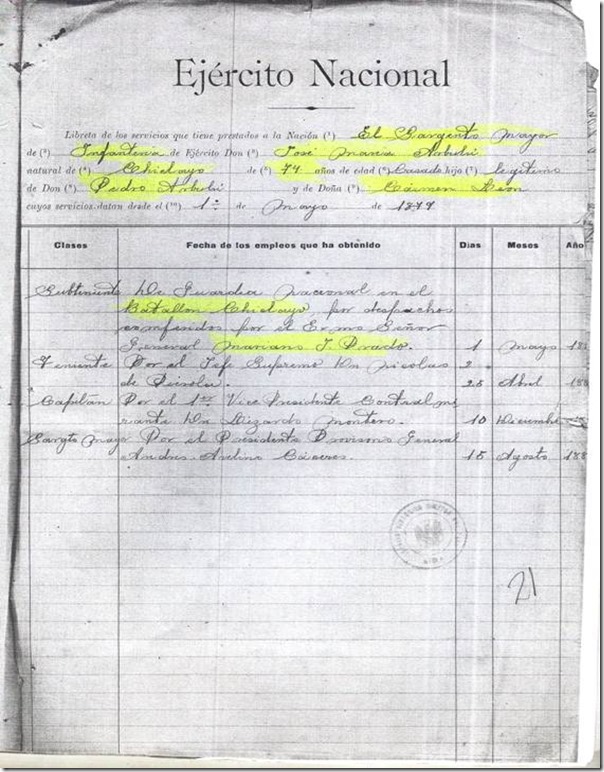 Ejército Nacional
Libreta de los servicios que tiene prestados a la Nación (¹) El Sargento Mayor
de (²) Infantería de Ejército Don (³) José María Arbulú
natural de (⁴) Chiclayo de (⁵) 74 años de edad (⁶) Casado hijo (⁷) legítimo
de Don (⁸) Pedro Arbulú y de Doña (⁹) Cármen León
cuyos servicios datan desde el (¹⁰) 1º de Mayo de 1879
Clases Fecha de los empleos que ha obtenido Dias Meses Año
Subteniente De Guardia Nacional en el
Batallon Chiclayo, por despachos
conferidos por el Exmo Señor
General Mariano I. Prado. 1 Mayo 18
Teniente Por el Jefe Supremo Dn Nicolas
de Piérola. 28 Abril 18
Capitán Por el 1er Vice Presidente Contralmi
rante Dn Lizardo Montero. 10 Diciembre
Sargto Mayor Por el Presidente Provisorio General
Andres Avelino Cáceres. 15 Agosto 188
21